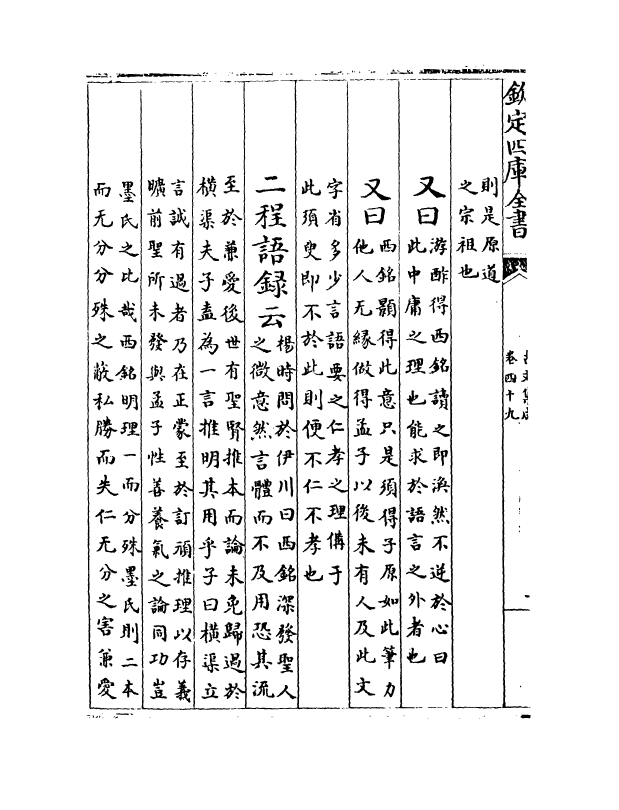 欽定四庫全書
卷四十九
則是原道
之宗祖也
又曰
游酢得西銘讀之即渙然不逆於心曰
此中庸之理也能求於語言之外者也
又曰
西銘顥得此意只是須得子原如此筆力
他人无縁做得孟子以後未有人及此文
字省多少言語要之仁孝之理備于
此湏臾即不於此則便不仁不孝也
二程語録云
楊時問於伊川曰西銘深發聖人
之微意然言體而不及用恐其流
至於兼愛後世有聖賢推本而論未免歸過於
橫渠夫子盍為一言推明其用乎子曰橫渠立
言誠有過者乃在正蒙至於訂頑推理以存義
曠前聖所未發與孟子性善養氣之論同功豈
墨氏之比哉西銘明理一而分殊墨氏則二本
而无分分殊之蔽私勝而失仁无分之害兼愛